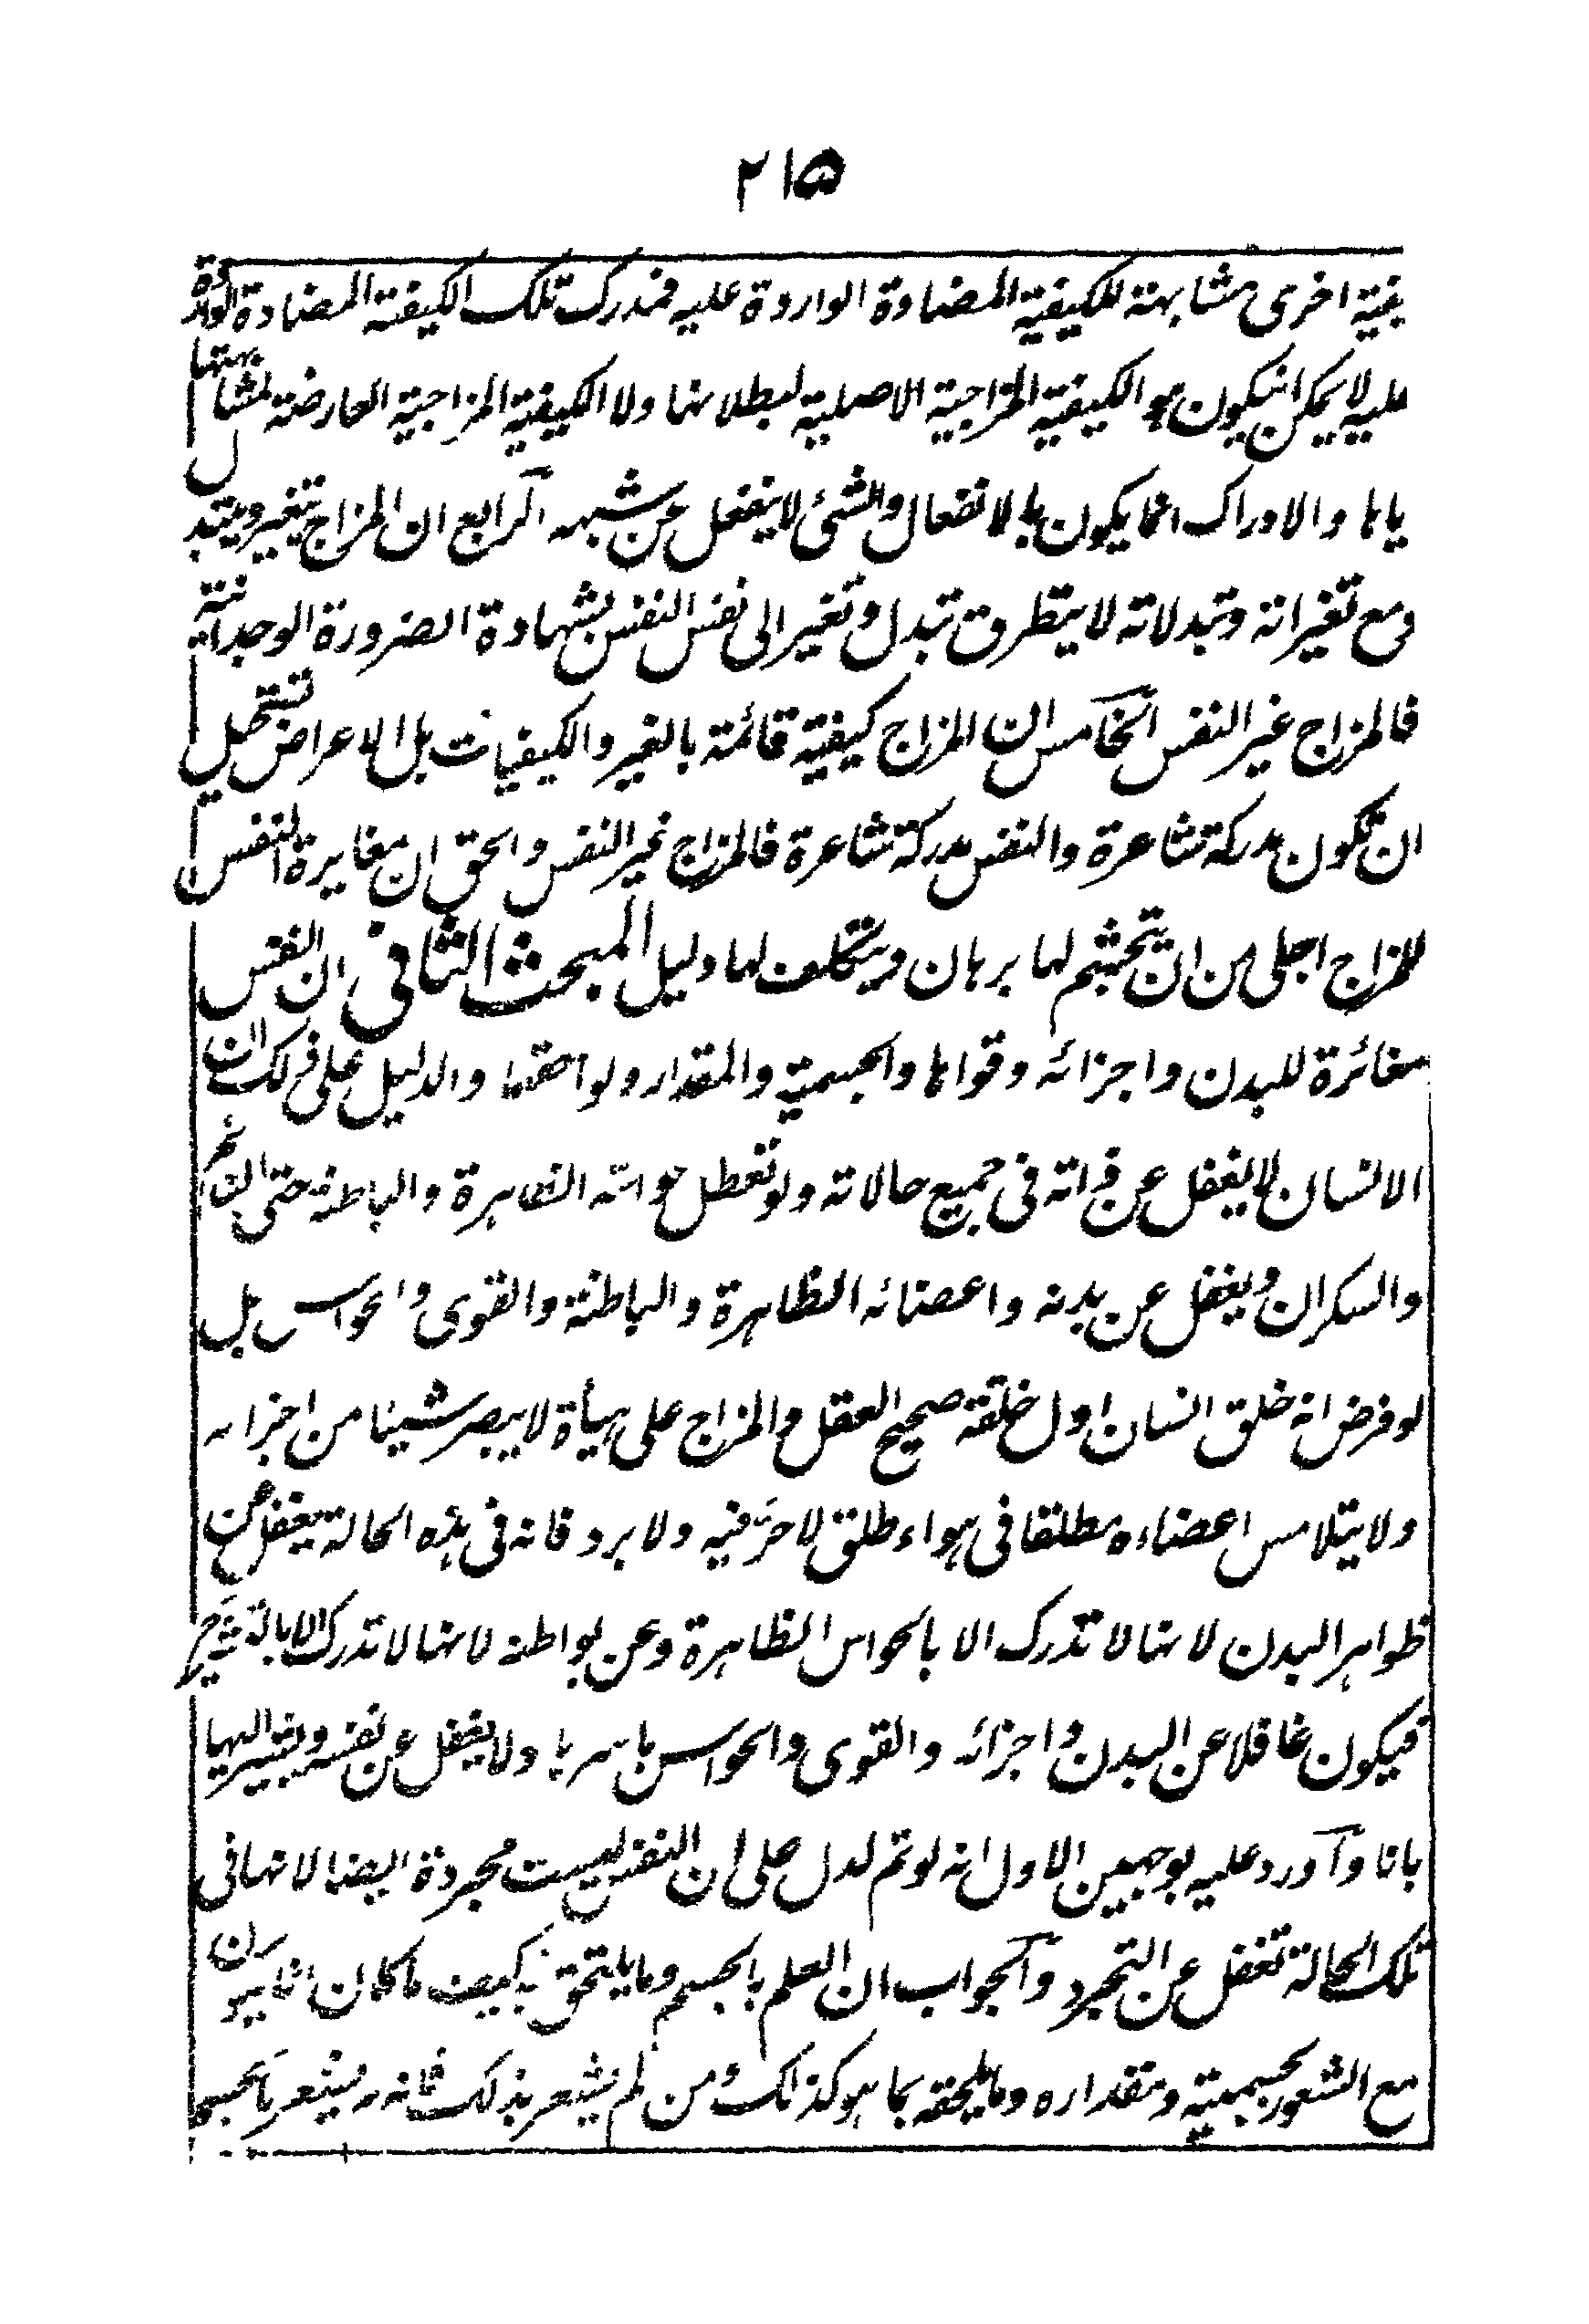 ٢١٥
يفية اخرى مشابهة للكيفية المضادة الواردة عليه فمدرك تلك الكيفية المضادة الواردة
عليه لا يمكن ان يكون هو الكيفية المزاجية الاصلية لبطلانها ولا الكيفية المزاجية العارضة لمشابهتها
اياها والادراك انما يكون بالانفعال والشئ لا ينفعل عن شبهه الرابع ان المزاج يتغير ويتبدل
ومع تغيراته وتبدلاته لا يتطرق تبدل وتغير الى نفس النفس بشهادة الضرورة الوجدانية
فالمزاج غير النفس الخامس ان المزاج كيفية قائمة بالغير والكيفيات بل الاعراض تستحيل
ان تكون مدركة شاعرة والنفس مدركة شاعرة فالمزاج غير النفس والحق ان مغايرة النفس
للمزاج اجلى من ان يتجشم لها برهان ويتكلف لها دليل المبحث الثاني ان النفس
مغائرة للبدن واجزائه وقواها والجسمية والمقدار ولواحقها والدليل على ذلك ان
الانسان لا يغفل عن ذاته في جميع حالاته ولو تعطل حواسه الظاهرة والباطنة حتى النائم
والسكران ويغفل عن بدنه واعضائه الظاهرة والباطنة والقوى والحواس بل
لو فرض انه خلق انسان اول خلقته صحيح العقل والمزاج على هيأة لا يبصر شيئا من اجزائه
ولا يتلامس اعضاءه مطلقا في هواء طلق لا حر فيه ولا برد فانه في هذه الحالة يغفل عن
ظواهر البدن لانها لا تدرك الا بالحواس الظاهرة وعن بواطنه لانها لا تدرك الا بالتشريح
فيكون غافلا عن البدن واجزائه والقوى والحواس باسرها ولا يغفل عن نفسه ويشير اليها
بانا وآورد عليه بوجهين الاول انه لو تم لدل على ان النفس ليست مجردة ايضا لانها في
تلك الحالة تغفل عن التجرد والجواب ان العلم بالجسم وما يلتحق به كيف ما كان انما يكون
مع الشعور بجسميته ومقداره وما يلحقه بما هو كذلك ومن لم يشعر بذلك فانه لم يشعر بالجسم